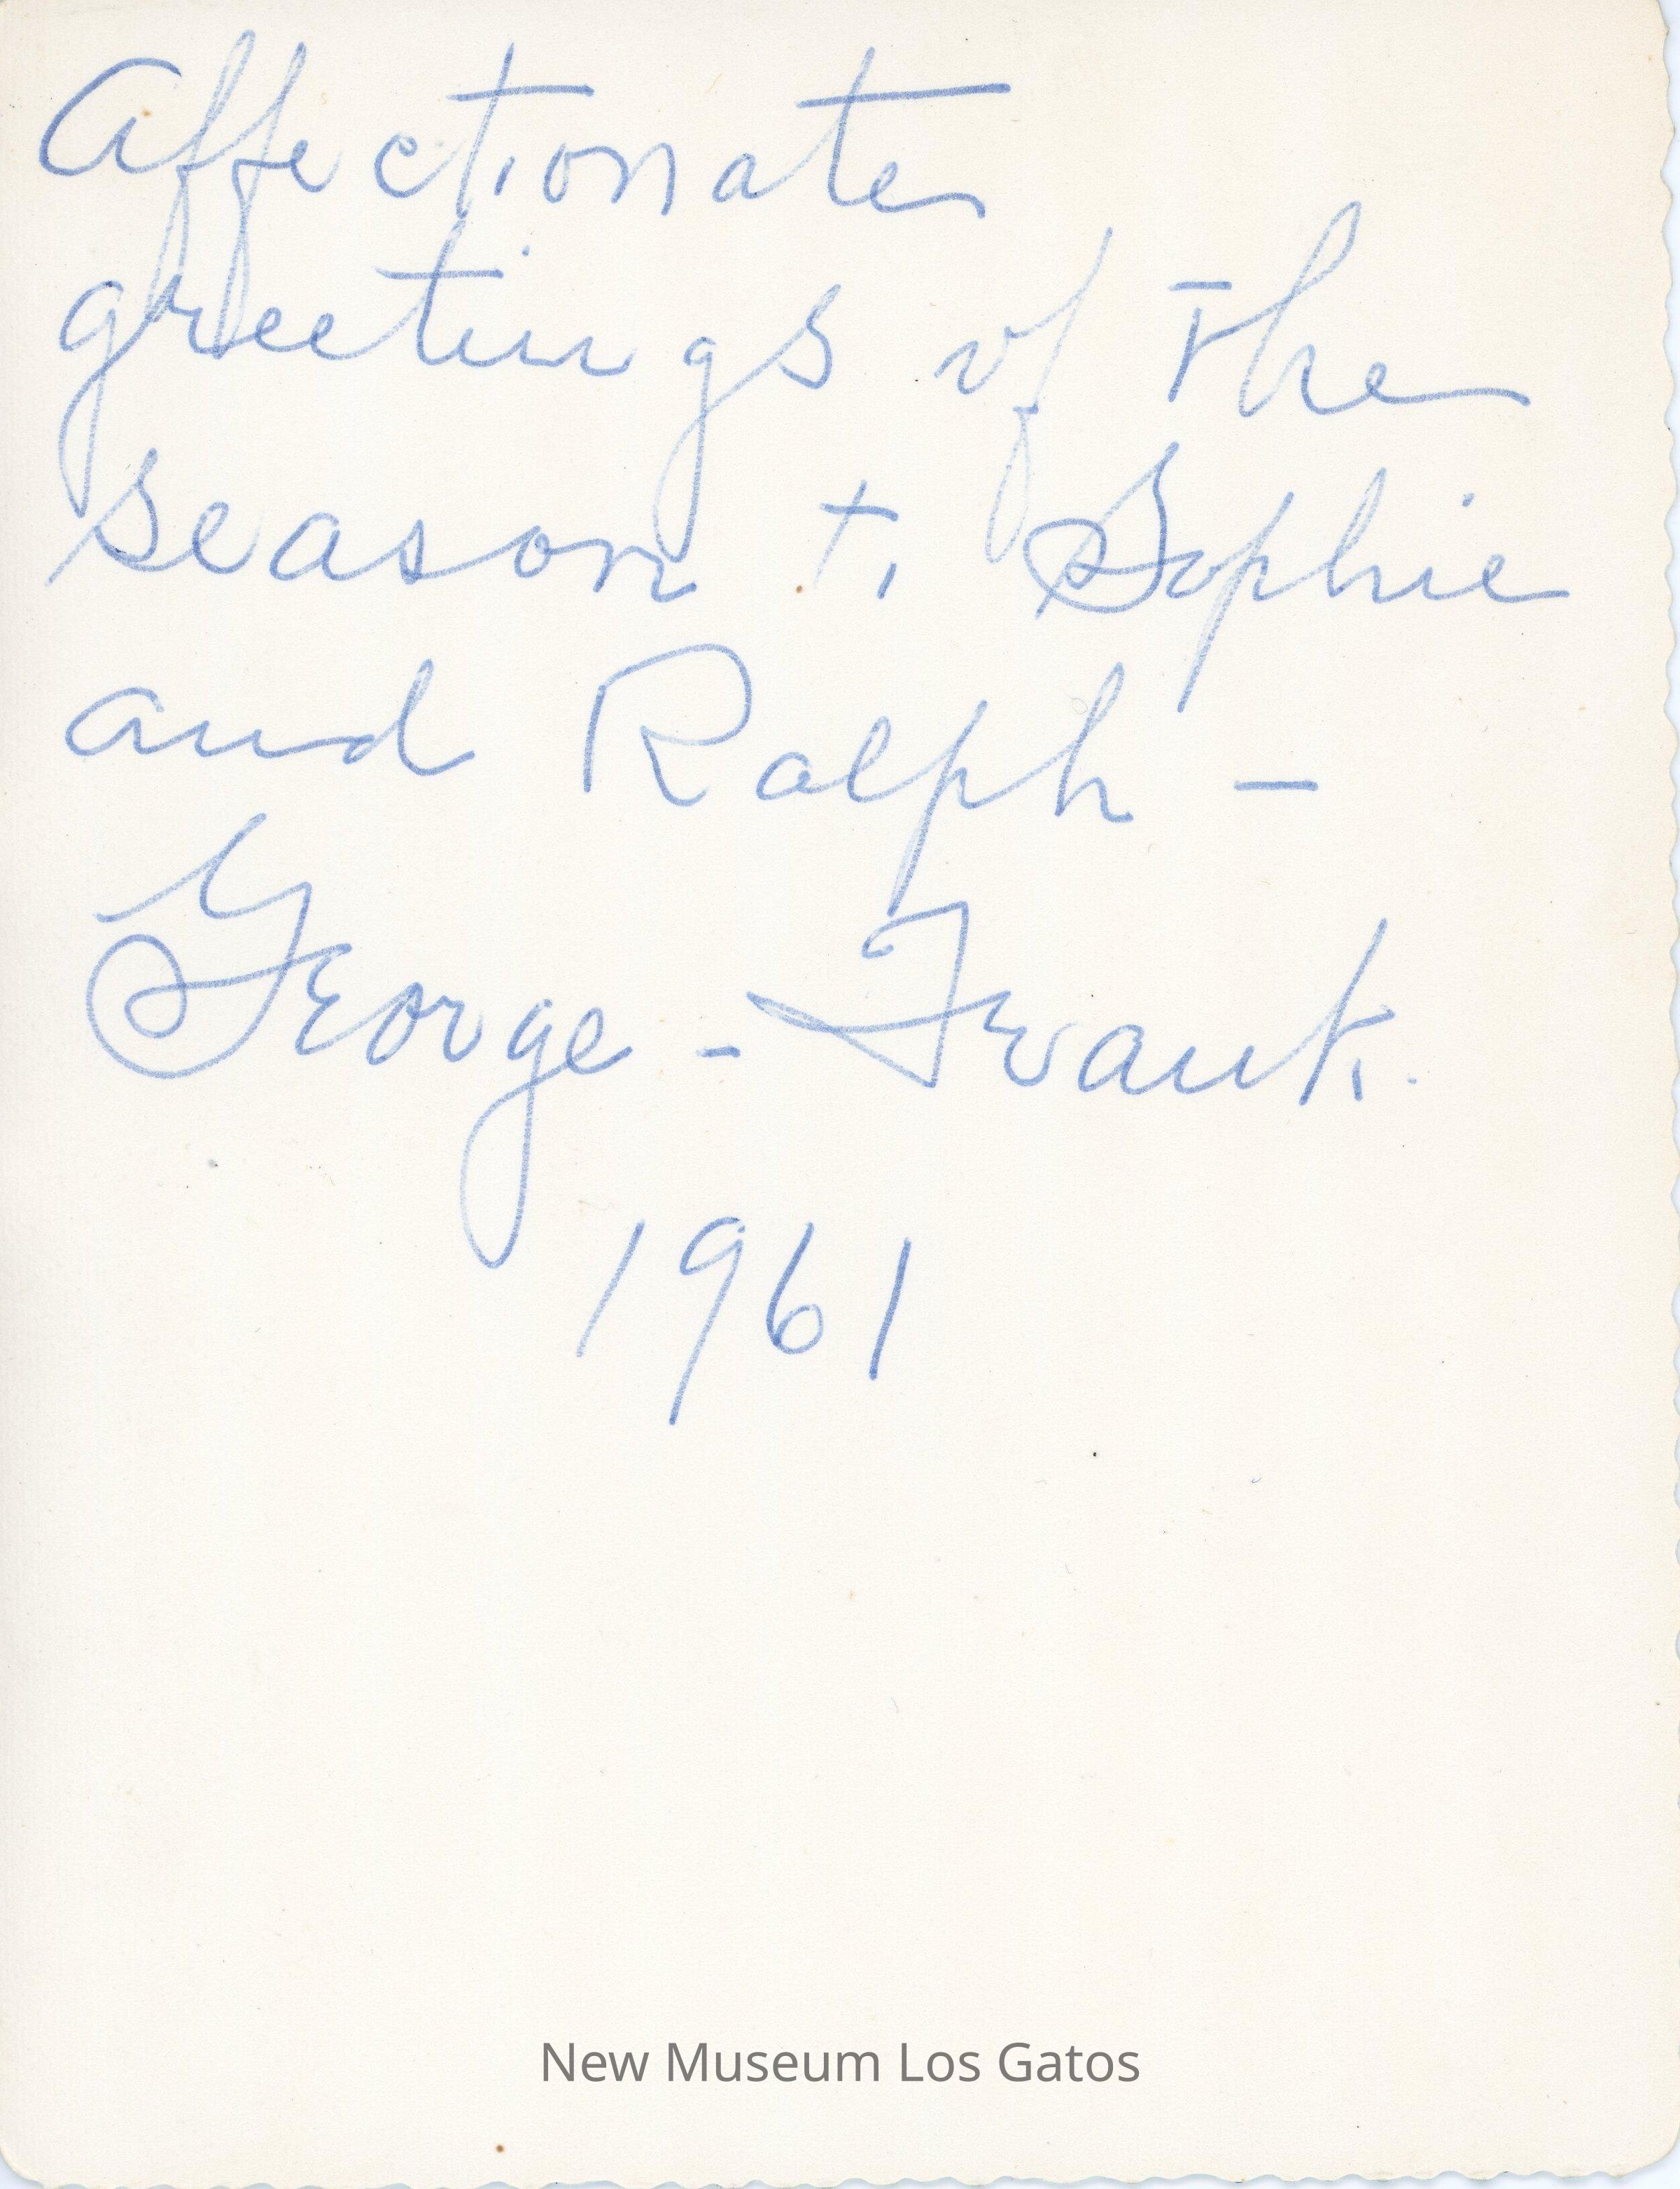 Affectionate
greetings of the
season to Sophie
and Ralph -
George - Frank.
1961
New Museum Los Gatos